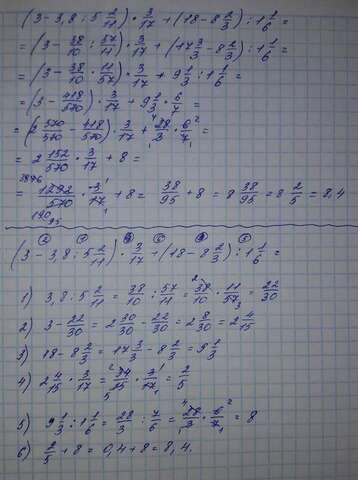 (3 - 3,8 : 5 2/11) · 3/17 + (18 - 8 2/3) : 1 1/6 =
= (3 - 38/10 : 57/11) · 3/17 + (17 3/3 - 8 2/3) : 1 1/6 =
= (3 - 38/10 · 11/57) · 3/17 + 9 1/3 : 1 1/6 =
= (3 - 418/570) · 3/17 + 9 1/3 · 6/7 =
= (2 570/570 - 418/570) · 3/17 + 28/3 · 6/7 =
= 2 152/570 · 3/17 + 8 =
= 1292/570 · 3/17 + 8 = 38/95 + 8 = 8 38/95 = 8 2/5 = 8,4
(3 - 3,8 : 5 2/11) · 3/17 + (18 - 8 2/3) : 1 1/6 =
1) 3,8 : 5 2/11 = 38/10 : 57/11 = 38/10 · 11/57 = 22/30
2) 3 - 22/30 = 2 30/30 - 22/30 = 2 8/30 = 2 4/15
3) 18 - 8 2/3 = 17 3/3 - 8 2/3 = 9 1/3
4) 2 4/15 · 3/17 = 34/15 · 3/17 = 2/5
5) 9 1/3 : 1 1/6 = 28/3 : 7/6 = 28/3 · 6/7 = 8
6) 2/5 + 8 = 0,4 + 8 = 8,4.